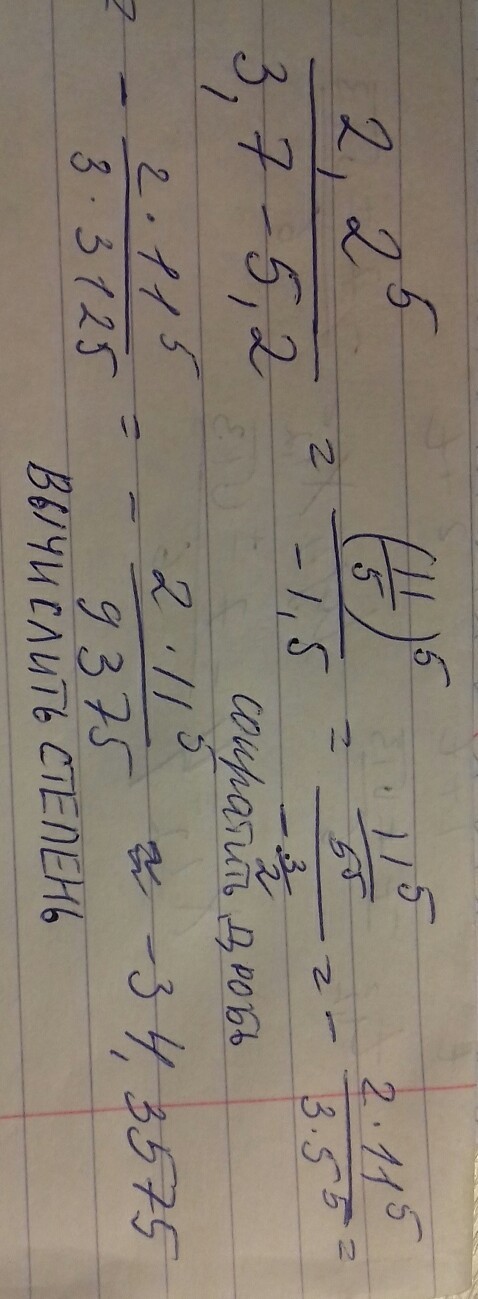 2,2^5 / (3,7 - 5,2) = (11/5)^5 / (-1,5) = (11^5 / 5^5) / (-3/2) = - (2·11^5) / (3·5^5) =
сократить дробь
= - (2·11^5) / (3·3125) = - (2·11^5) / 9375 ≈ -34,3575
ВЫЧИСЛИТЬ СТЕПЕНЬ